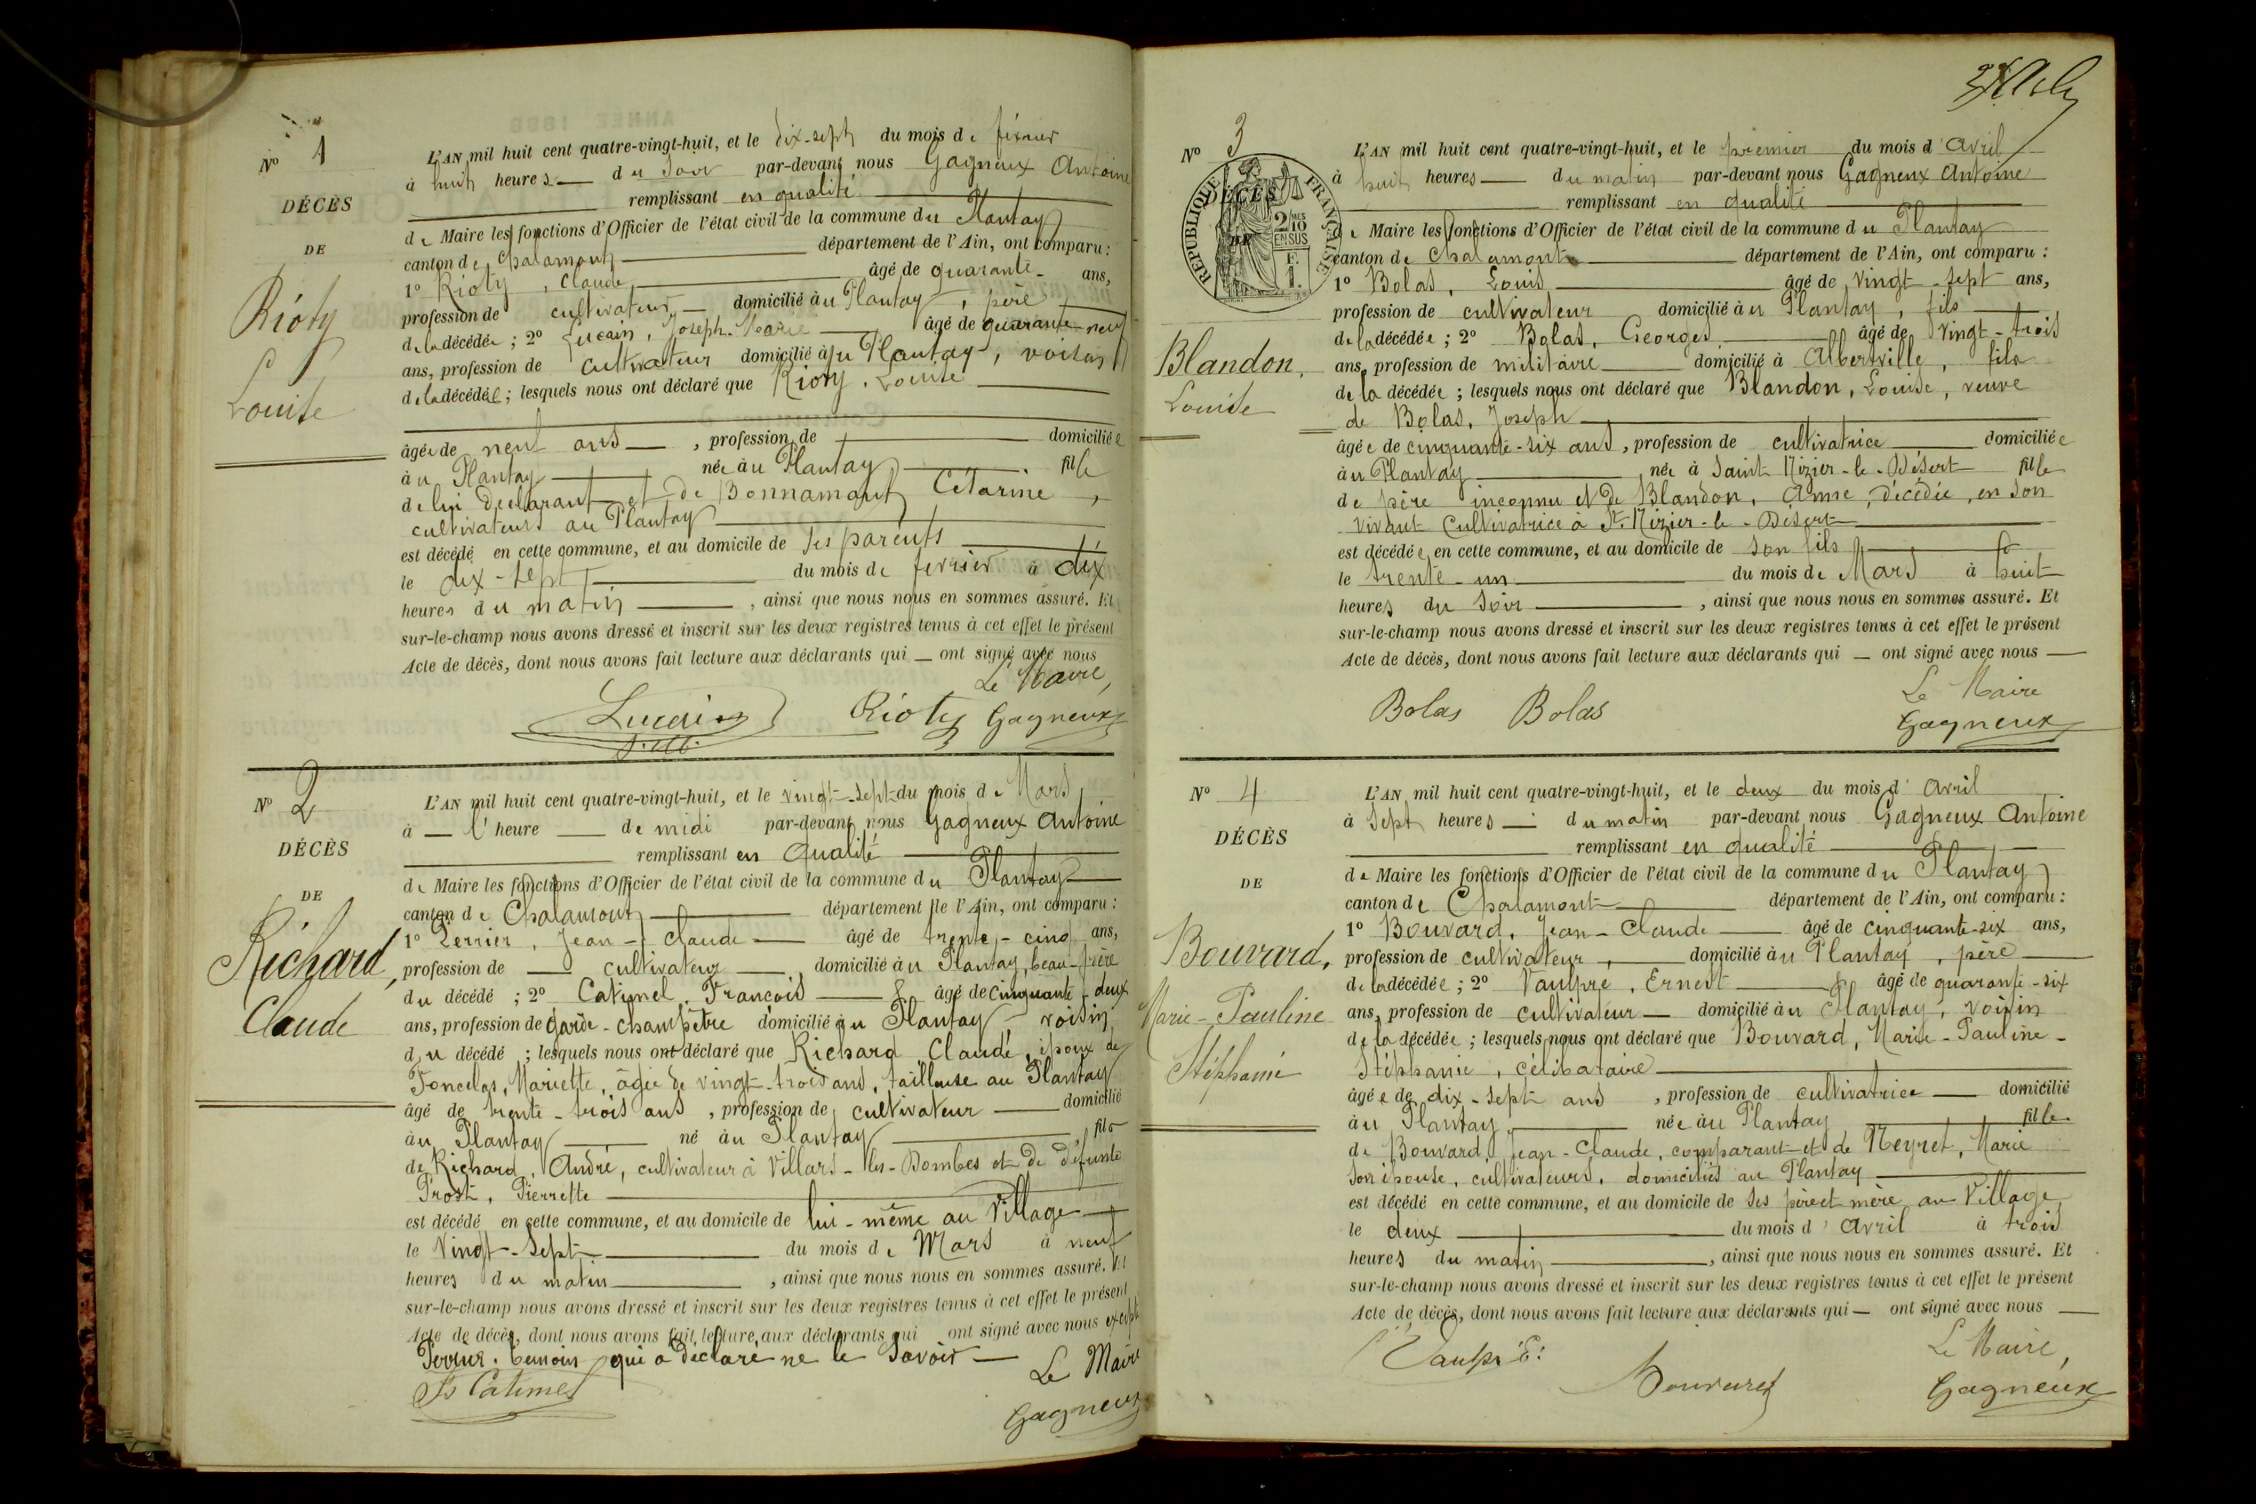 Nº 1
DÉCÈS
DE
Rioty
Louise
L'AN mil huit cent quatre-vingt-huit, et le dix-sept du mois de février
à huit heures du soir par-devant nous Gagneux Antoine
remplissant en qualité
de Maire les fonctions d'Officier de l'état civil de la commune du Plantay
canton de Chalamont département de l'Ain, ont comparu :
1º Rioty, Claude âgé de quarante ans,
profession de cultivateur domicilié au Plantay, père
de la décédée ; 2º Lucain, Joseph-Marie âgé de quarante-neuf
ans, profession de cultivateur domicilié au Plantay, voisin
de la décédée ; lesquels nous ont déclaré que Rioty, Louise
âgée de neuf ans, profession de domiciliée
au Plantay née au Plantay fille
de lui déclarant et de Bonnamour Cétarine,
cultivateurs au Plantay
est décédé en cette commune, et au domicile de ses parents
le dix-sept du mois de février à dix
heures du matin, ainsi que nous nous en sommes assuré. Et
sur-le-champ nous avons dressé et inscrit sur les deux registres tenus à cet effet le présent
Acte de décès, dont nous avons fait lecture aux déclarants qui — ont signé avec nous
Le Maire,
Lucain Rioty Gagneux
Nº 2
DÉCÈS
DE
Richard,
Claude
L'AN mil huit cent quatre-vingt-huit, et le vingt-sept du mois de Mars
à — l'heure — de midi par-devant nous Gagneux Antoine
remplissant en qualité
de Maire les fonctions d'Officier de l'état civil de la commune du Plantay
canton de Chalamont département de l'Ain, ont comparu :
1º Perrier, Jean-Claude âgé de trente-cinq ans,
profession de cultivateur, domicilié au Plantay, beau-frère
du décédé ; 2º Catimel, François âgé de cinquante-deux
ans, profession de garde-champêtre domicilié au Plantay voisin
du décédé ; lesquels nous ont déclaré que Richard, Claude, époux de
Foncelas, Mariette, âgée de vingt-trois ans, tailleuse au Plantay
âgé de trente-trois ans, profession de cultivateur domicilié
au Plantay né au Plantay, fils
de Richard, André, cultivateur à Villars-les-Dombes et de défunte
Prost, Pierrette
est décédé en cette commune, et au domicile de lui-même au Village
le Vingt-Sept du mois de Mars à neuf
heures du matin, ainsi que nous nous en sommes assuré. Et
sur-le-champ nous avons dressé et inscrit sur les deux registres tenus à cet effet le présent
Acte de décès, dont nous avons fait lecture aux déclarants qui ont signé avec nous excepté
Perrier, témoin qui a déclaré ne le savoir —
Le Maire
Fs Catimel
Gagneux
Nº 3
RÉPUBLIQUE FRANÇAISE
2/10 MES
EN SUS
F.
1.
DÉCÈS
DE
Blandon,
Louise
L'AN mil huit cent quatre-vingt-huit, et le premier du mois d'avril
à huit heures du matin par-devant nous Gagneux Antoine
remplissant en qualité
de Maire les fonctions d'Officier de l'état civil de la commune du Plantay
canton de Chalamont département de l'Ain, ont comparu :
1º Bolas, Louis âgé de vingt-sept ans,
profession de cultivateur domicilié au Plantay, fils
de la décédée ; 2º Bolas, Georges âgé de vingt-trois
ans, profession de militaire domicilié à Albertville, fils
de la décédée ; lesquels nous ont déclaré que Blandon, Louise, veuve
de Bolas, Joseph
âgée de cinquante-six ans, profession de cultivatrice domiciliée
au Plantay, née à Saint Nizier-le-Désert fille
de père inconnu et de Blandon, Anne, décédée, en son
vivant cultivatrice à St Nizier-le-Désert
est décédée en cette commune, et au domicile de son fils
le trente-un du mois de Mars à huit
heures du soir, ainsi que nous nous en sommes assuré. Et
sur-le-champ nous avons dressé et inscrit sur les deux registres tenus à cet effet le présent
Acte de décès, dont nous avons fait lecture aux déclarants qui — ont signé avec nous —
Bolas Bolas Le Maire
Gagneux
Nº 4
DÉCÈS
DE
Bouvard,
Marie-Pauline
Stéphanie
L'AN mil huit cent quatre-vingt-huit, et le deux du mois d'avril
à sept heures du matin par-devant nous Gagneux Antoine
remplissant en qualité
de Maire les fonctions d'Officier de l'état civil de la commune du Plantay
canton de Chalamont département de l'Ain, ont comparu :
1º Bouvard, Jean-Claude âgé de cinquante-six ans,
profession de cultivateur, domicilié au Plantay, père
de la décédée ; 2º Vaulpré, Ernest âgé de quarante-six
ans, profession de cultivateur domicilié au Plantay, voisin
de la décédée ; lesquels nous ont déclaré que Bouvard, Marie-Pauline-
Stéphanie, célibataire
âgée de dix-sept ans, profession de cultivatrice domicilié
au Plantay née au Plantay fille
de Bouvard, Jean-Claude, comparant et de Neyret, Marie
son épouse, cultivateurs, domiciliés au Plantay
est décédé en cette commune, et au domicile de ses père et mère au Village
le deux du mois d'avril à trois
heures du matin, ainsi que nous nous en sommes assuré. Et
sur-le-champ nous avons dressé et inscrit sur les deux registres tenus à cet effet le présent
Acte de décès, dont nous avons fait lecture aux déclarants qui — ont signé avec nous —
Vaulpré E. Le Maire,
Bouvard Gagneux